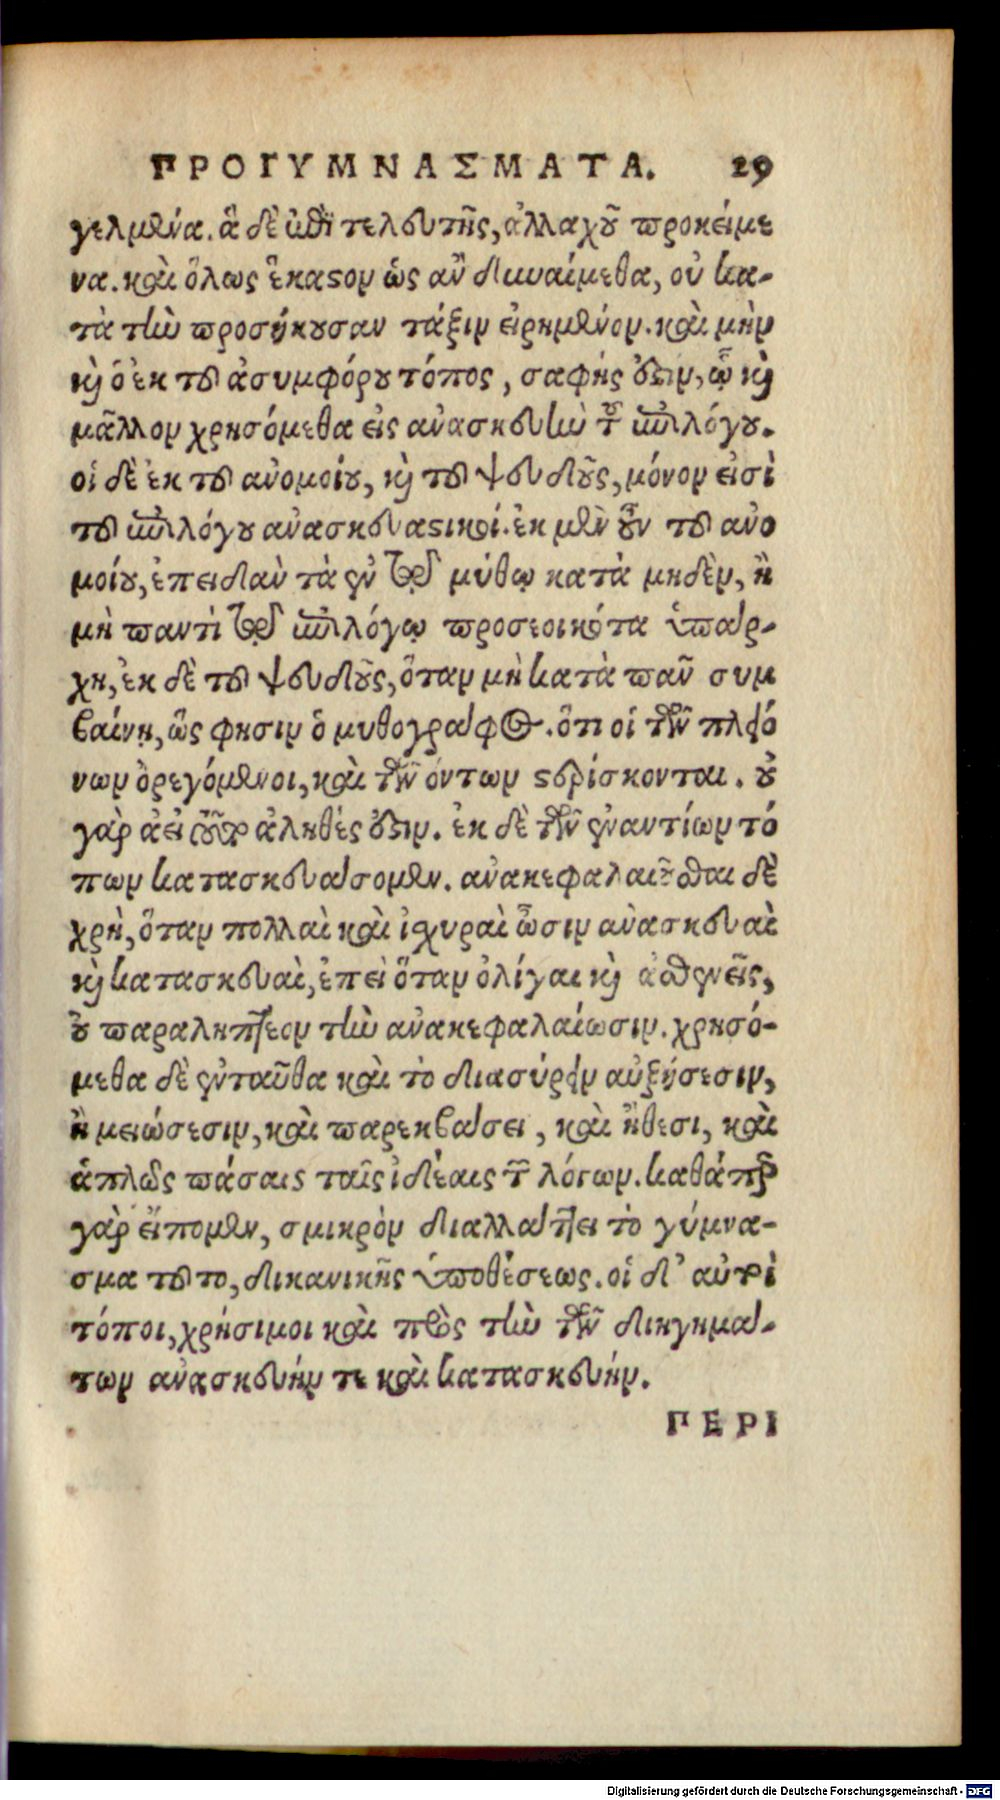 ΠΡΟΓΥΜΝΑΣΜΑΤΑ. 29
γελμένα. ἃ δὲ ἐπὶ τελευτῆς, ἀλλαχοῦ προκείμε
να. καὶ ὅλως ἕκαστον ὡς ἂν δυναίμεθα, οὐ κα-
τὰ τὴν προσήκουσαν τάξιν εἰρημένον. καὶ μὴν
καὶ ὁ ἐκ τοῦ ἀσυμφόρου τόπος, σαφής ἐστιν, ᾧ καὶ
μᾶλλον χρησόμεθα εἰς ἀνασκευὴν τοῦ ἐπιλόγου.
οἱ δὲ ἐκ τοῦ ἀνομοίου, καὶ τοῦ ψευδοῦς, μόνον εἰσὶ
τοῦ ἐπιλόγου ἀνασκευαστικοί. ἐκ μὲν οὖν τοῦ ἀνο
μοίου, ἐπειδὰν τὰ ἐν τῷ μύθῳ κατὰ μηδὲν, ἢ
μὴ παντὶ τῷ ἐπιλόγῳ προσεοικότα ὑπάρ-
χῃ, ἐκ δὲ τοῦ ψευδοῦς, ὅταν μὴ κατὰ πᾶν συμ
βαίνῃ, ὥς φησιν ὁ μυθογράφος. ὅτι οἱ τῶν πλειό
νων ὀρεγόμενοι, καὶ τῶν ὄντων στερίσκονται. οὐ
γὰρ ἀεὶ τοῦτο ἀληθές ἐστιν. ἐκ δὲ τῶν ἐναντίων τό
πων κατασκευάσομεν. ἀνακεφαλαιοῦσθαι δὲ
χρὴ, ὅταν πολλαὶ καὶ ἰσχυραὶ ὦσιν ἀνασκευαὶ
καὶ κατασκευαὶ, ἐπεὶ ὅταν ὀλίγαι καὶ ἀσθενεῖς,
οὐ παραληπτέον τὴν ἀνακεφαλαίωσιν. χρησό-
μεθα δὲ ἐνταῦθα καὶ τὸ διασύρειν αὐξήσεσιν,
ἢ μειώσεσιν, καὶ παρεκβάσει, καὶ ἤθεσι, καὶ
ἁπλῶς πάσαις ταῖς ἰδέαις τῶν λόγων. καθάπερ
γὰρ εἴπομεν, σμικρὸν διαλλάττει τὸ γύμνα-
σμα τοῦτο, δικανικῆς ὑποθέσεως. οἱ δ' αὐτοὶ
τόποι, χρήσιμοι καὶ πρὸς τὴν τῶν διηγημά-
των ἀνασκευήν τε καὶ κατασκευήν.
ΠΕΡΙ
Digitalisierung gefördert durch die Deutsche Forschungsgemeinschaft - DFG